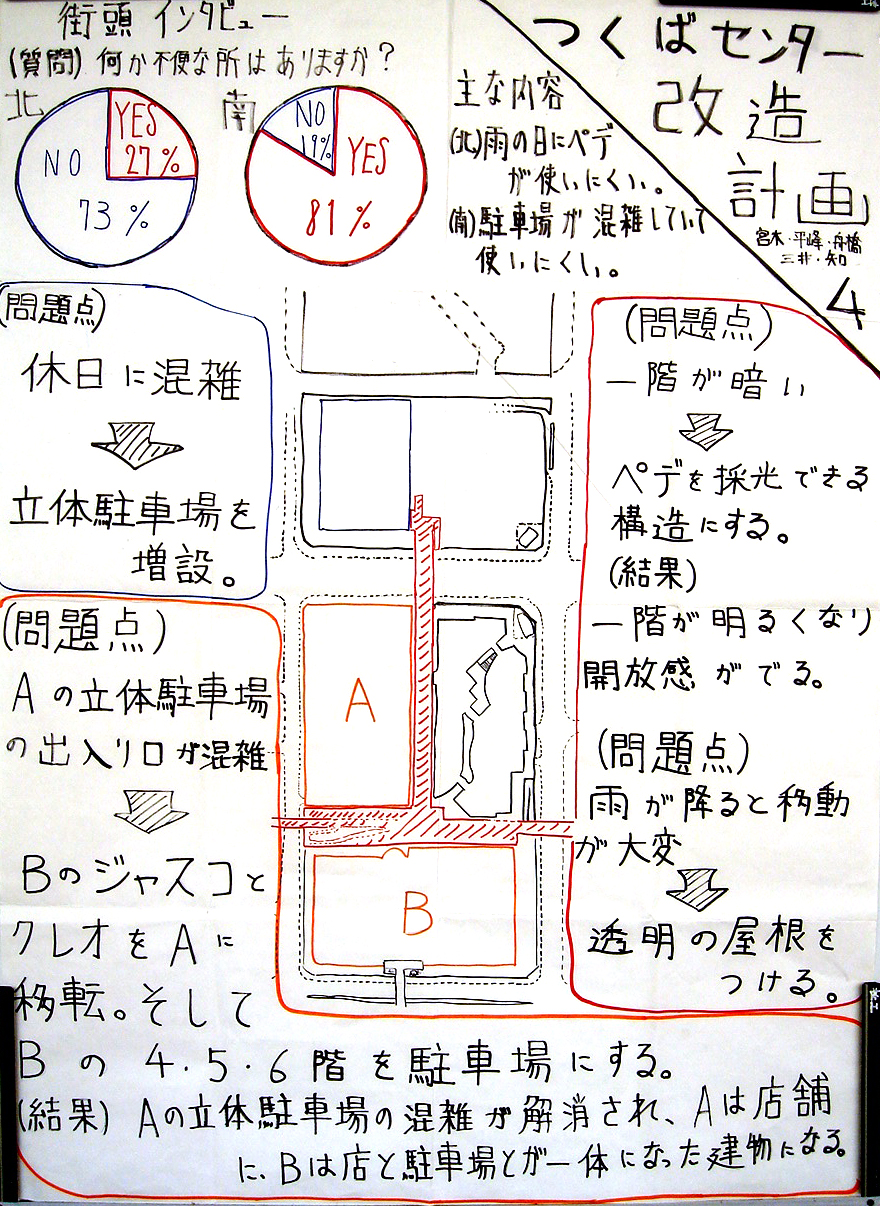 つくばセンター
改造
計画
宮本・平峰・舟橋
三井・知口
4
街頭インタビュー
(質問)何か不便な所はありますか?
北
YES
27%
NO
73%
南
NO
19%
YES
81%
主な内容
(北)雨の日にペデ
が使いにくい。
(南)駐車場が混雑していて
使いにくい。
(問題点)
休日に混雑
立体駐車場を
増設。
(問題点)
Aの立体駐車場
の出入り口が混雑
BのジャスコとA
クレオをAに
移転。そして
Bの4・5・6階を駐車場にする。
(結果)Aの立体駐車場の混雑が解消され、Aは店舗
に、Bは店と駐車場とが一体になった建物になる。
A
B
(問題点)
一階が暗い
ペデを採光できる
構造にする。
(結果)
一階が明るくなり
開放感がでる。
(問題点)
雨が降ると移動
が大変
透明の屋根を
つける。